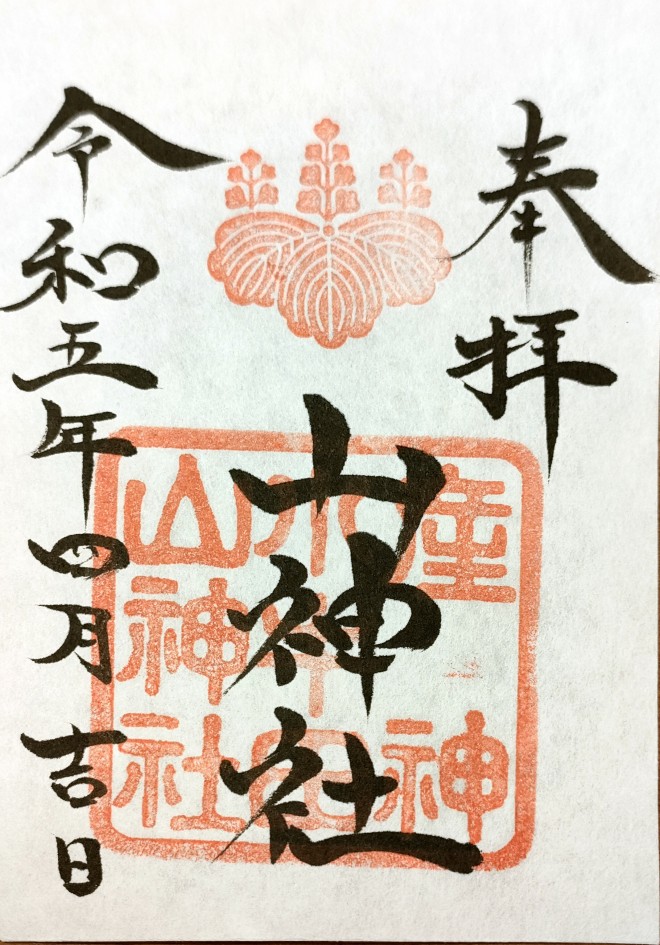 奉拝
山神社
令和五年四月吉日
産
神
山神社